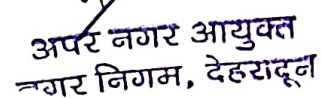 अपर नगर आयुक्त
नगर निगम, देहरादून